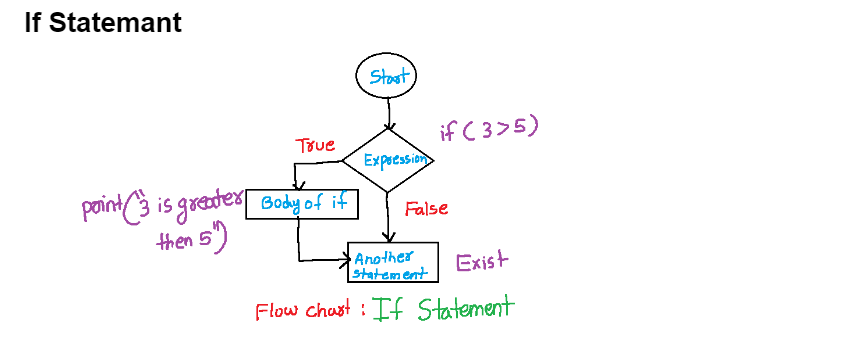 If Statemant
Start
if ( 3 > 5 )
True
Expression
print("3 is greater
then 5")
Body of if
False
Another
statement
Exist
Flow chart : If Statement